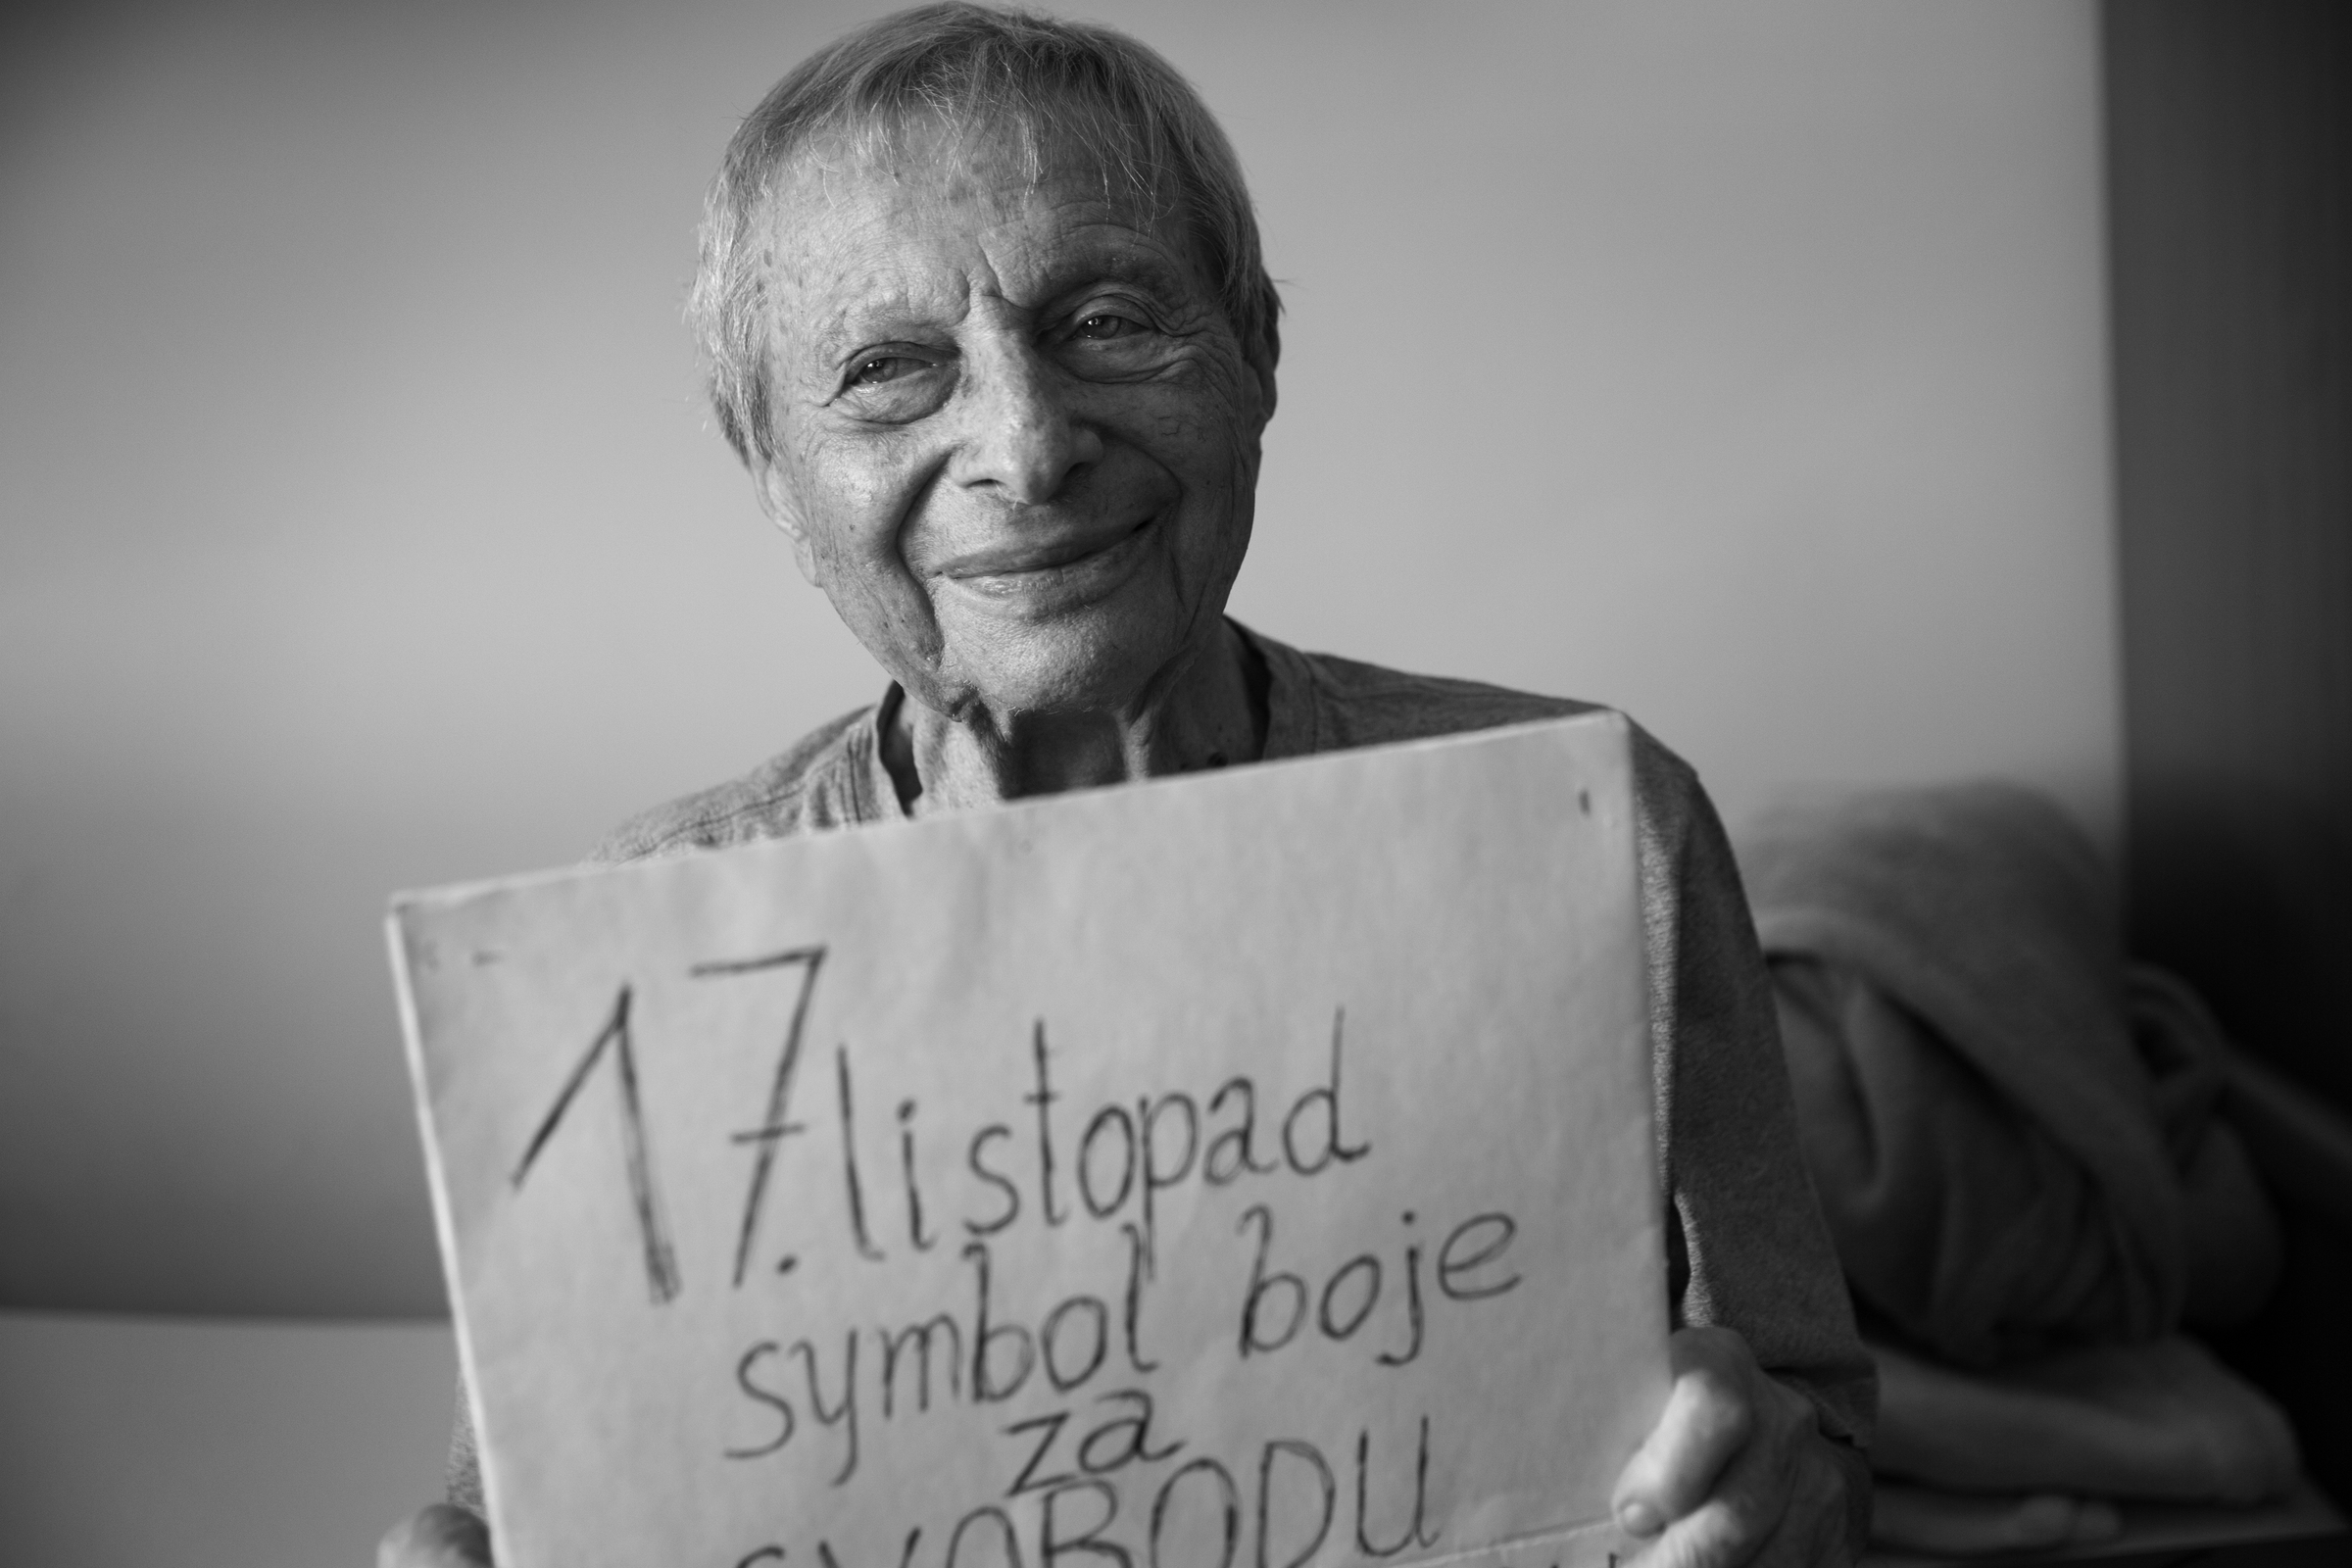 17. listopad
symbol boje
za
SVOBODU